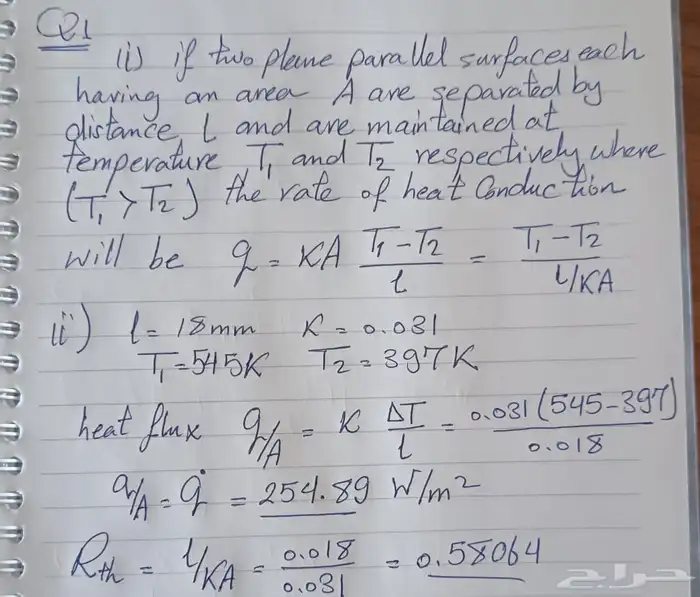 Q1
(i) if two plane parallel surfaces each
having an area A are separated by
distance L and are maintained at
temperature T₁ and T₂ respectively where
(T₁ > T₂) the rate of heat conduction
will be q = KA (T₁ - T₂)/l = (T₁ - T₂)/(L/KA)
ii) l = 18mm K = 0.031
T₁ = 545K T₂ = 397K
heat flux q/A = K ΔT/l = 0.031(545-397)/0.018
q/A = q̇ = 254.89 W/m²
Rth = L/KA = 0.018/0.031 = 0.58064
حراج